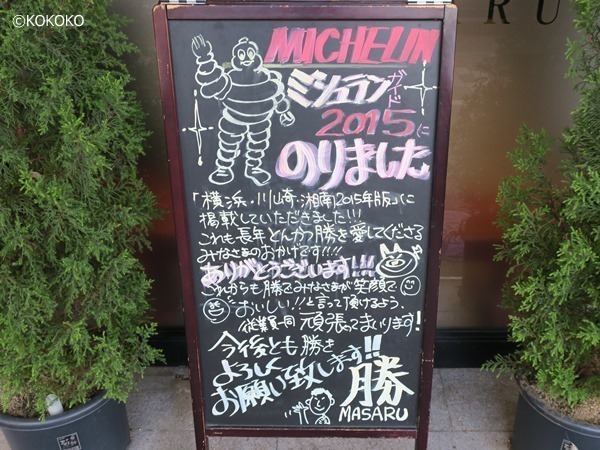 ©KOKOKO
RU
MICHELIN
ミシュランガイド
2015に
のりました
「横浜・川崎・湘南2015年版」に
掲載していただきました!!!
これも長年とんかつ勝を愛してくださる
みなさまのおかげです!!!!
ありがとうございます!!!!
これからも勝でみなさまが笑顔で
おいしい!!と言って頂けるよう、
従業員一同 頑張ってまいります!
今後とも勝を
よろしく
お願い致します!!
勝
MASARU